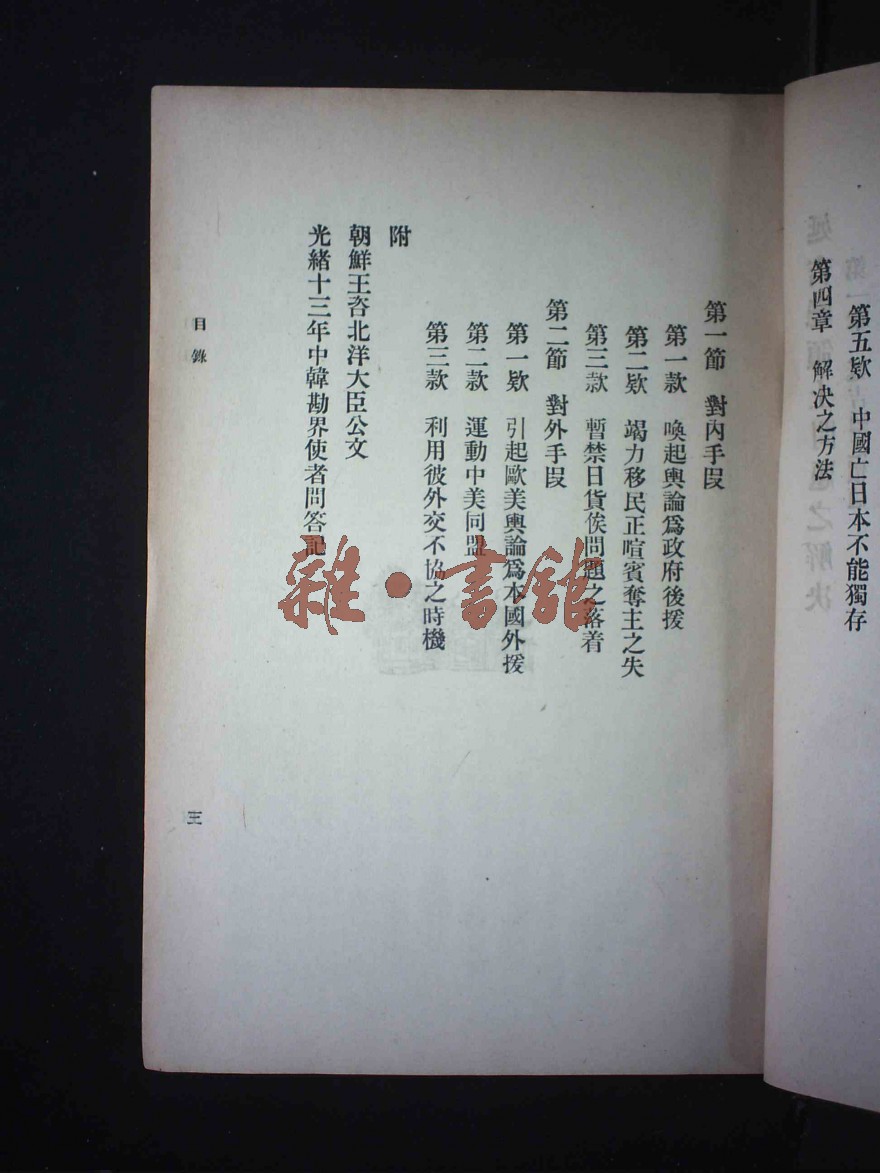 第五欵　中國亡日本不能獨存
第四章　解决之方法
第一節　對內手段
第一款　喚起輿論爲政府後援
第二欵　竭力移民正喧賓奪主之失
第三款　暫禁日貨俟問題之落着
第二節　對外手段
第一欵　引起歐美輿論爲本國外援
第二款　運動中美同盟
第三款　利用彼外交不協之時機
附
朝鮮王咨北洋大臣公文
光緒十三年中韓勘界使者問答記
目錄
三
雜·書館